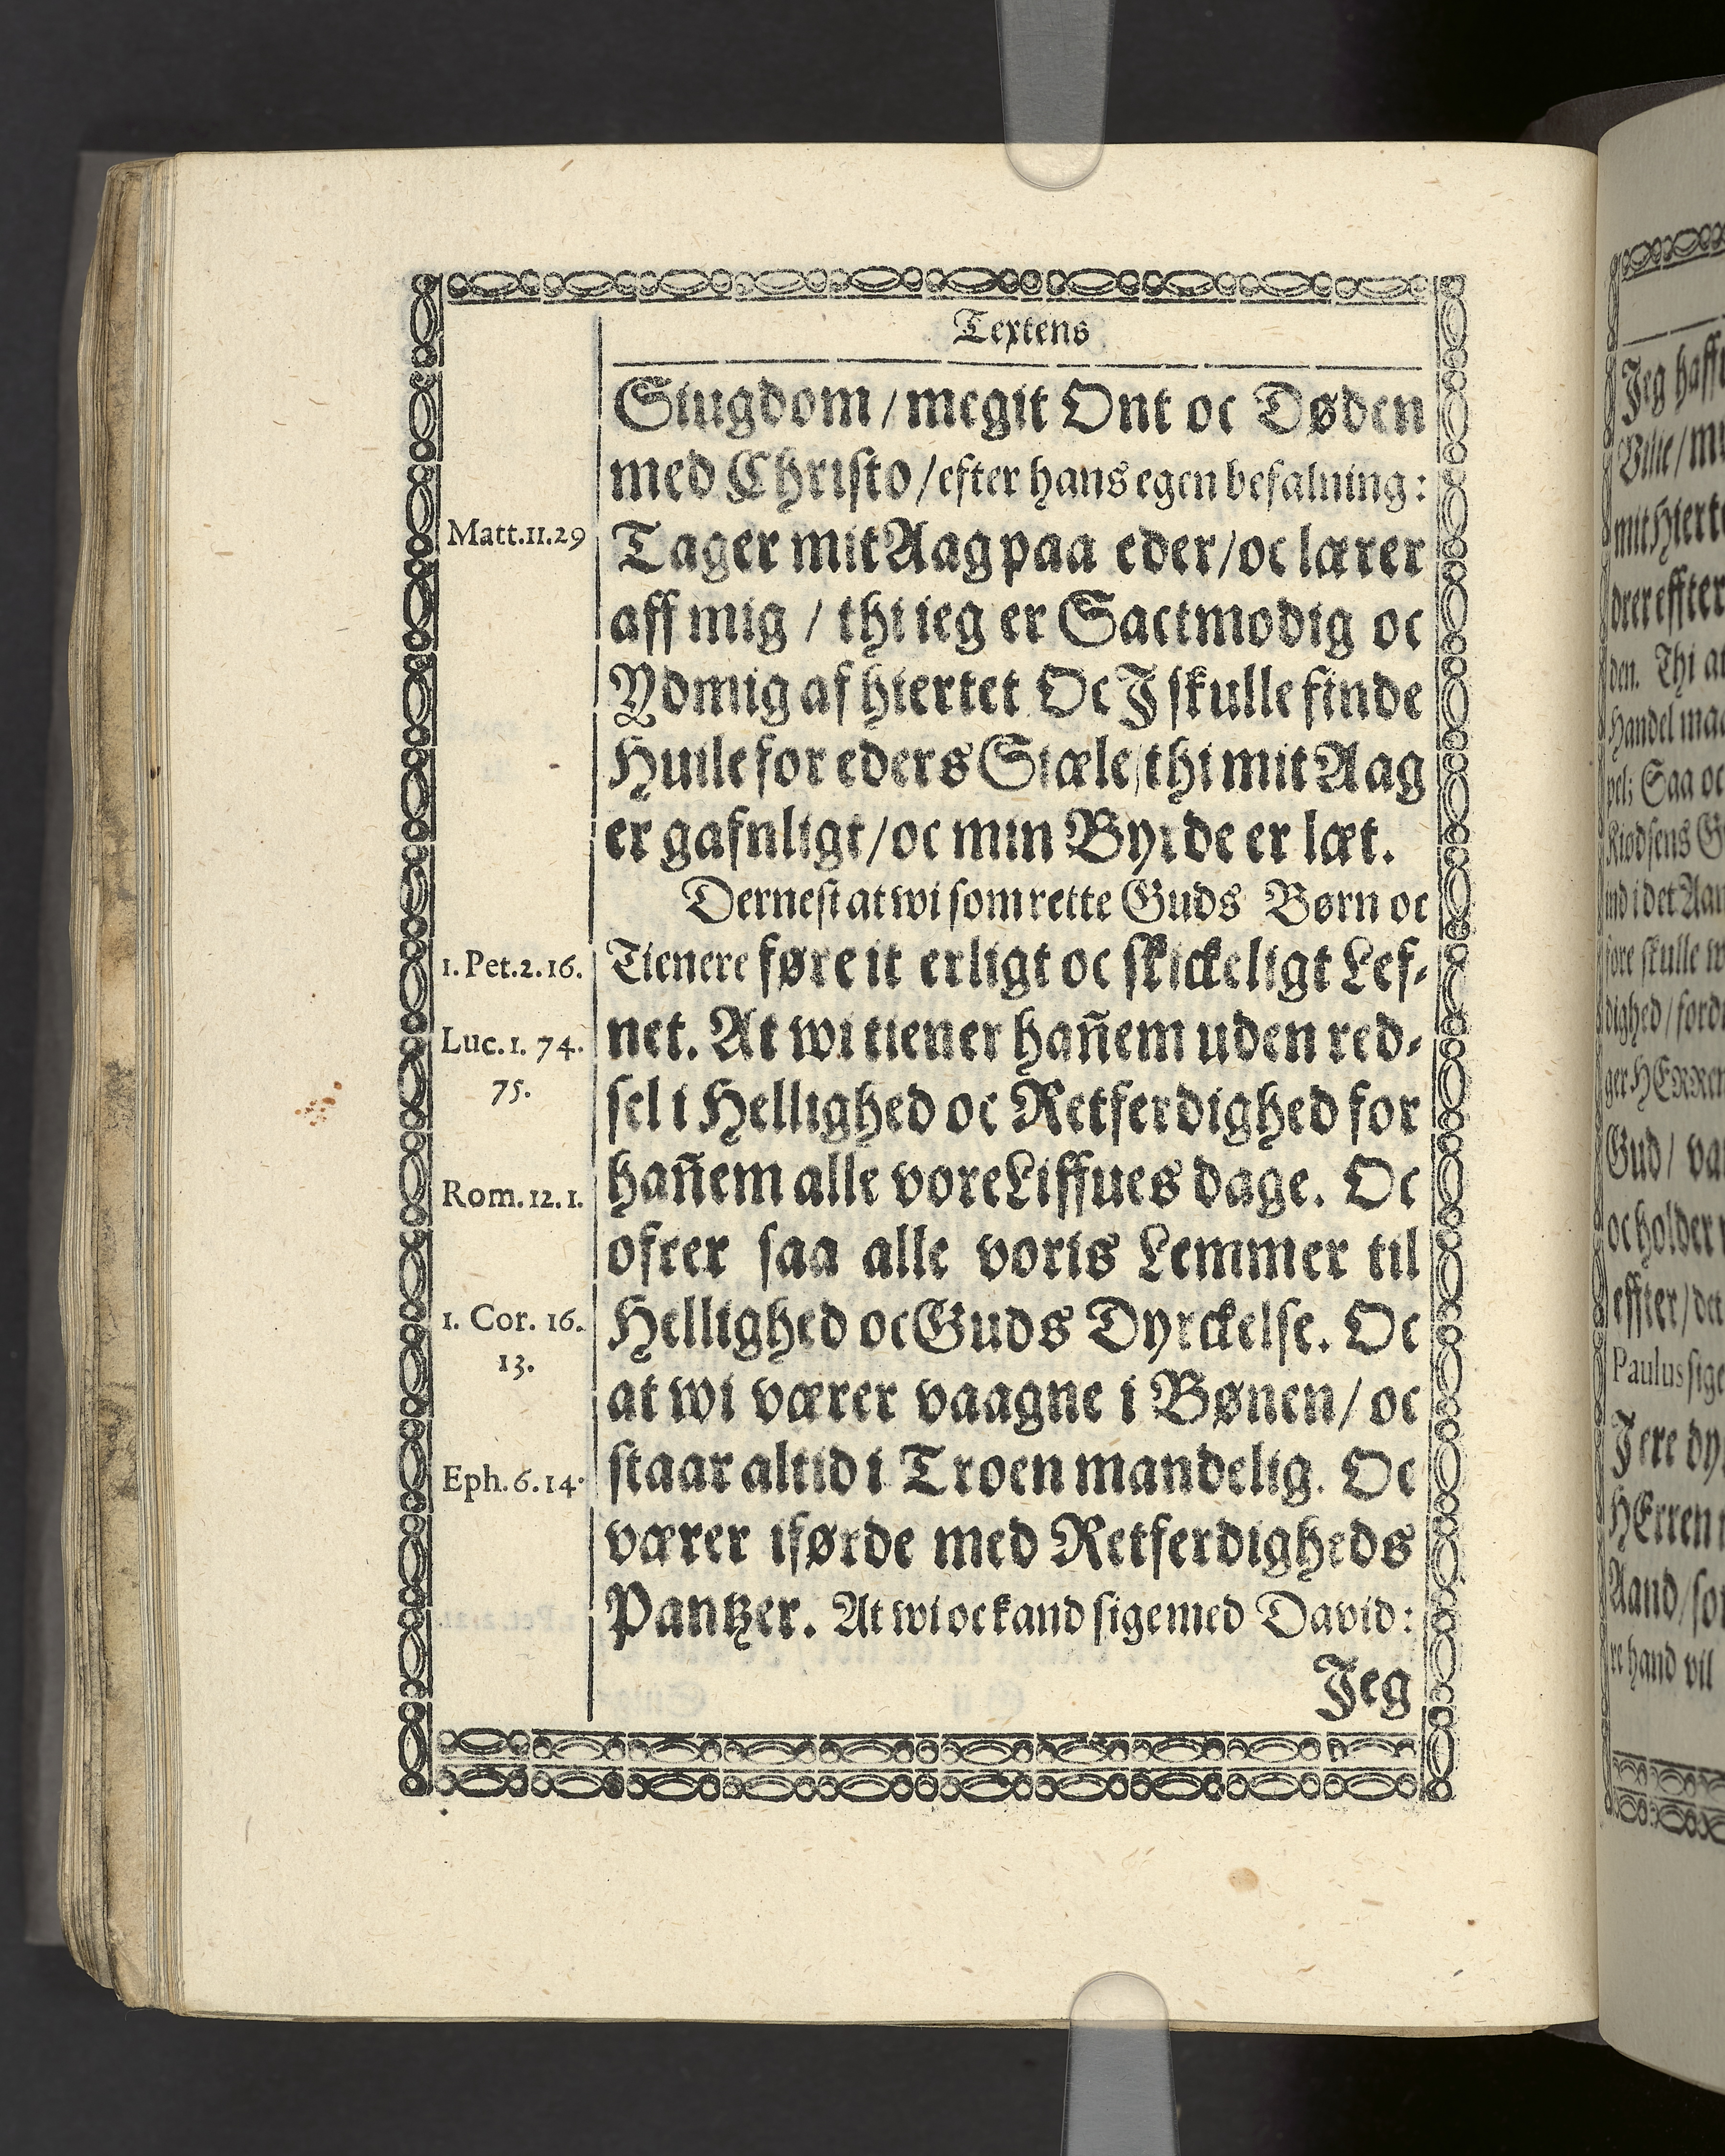 Textens
Siugdom / megit Ont oc Døden
med Christo / efter hans egen befalning:
Matt.11.29
Tager mit Aag paa eder / oc lærer
aff mig / thi ieg er Sactmodig oc
Ydmig af hiertet Oc J skulle finde
Huile for eders Siæle / thi mit Aag
er gafnligt / oc min Byrde er læt.
Dernest at wi som rette Guds Børn oc
1. Pet.2.16.
Tienere føre it erligt oc skickeligt Lef-
Luc.1. 74.
75.
net. At wi tiener hañem uden red-
sel i Hellighed oc Retferdighed for
Rom.12.1.
hañem alle vore Liffues dage. Oc
ofrer saa alle voris Lemmer til
1. Cor. 16.
13.
Hellighed oc Guds Dyrckelse. Oc
at wi værer vaagne i Bønen / oc
Eph.6.14.
staar altid i Troen mandelig. Oc
værer iførde med Retferdigheds
Pantzer. At wi oc kand sige med David:
Jeg